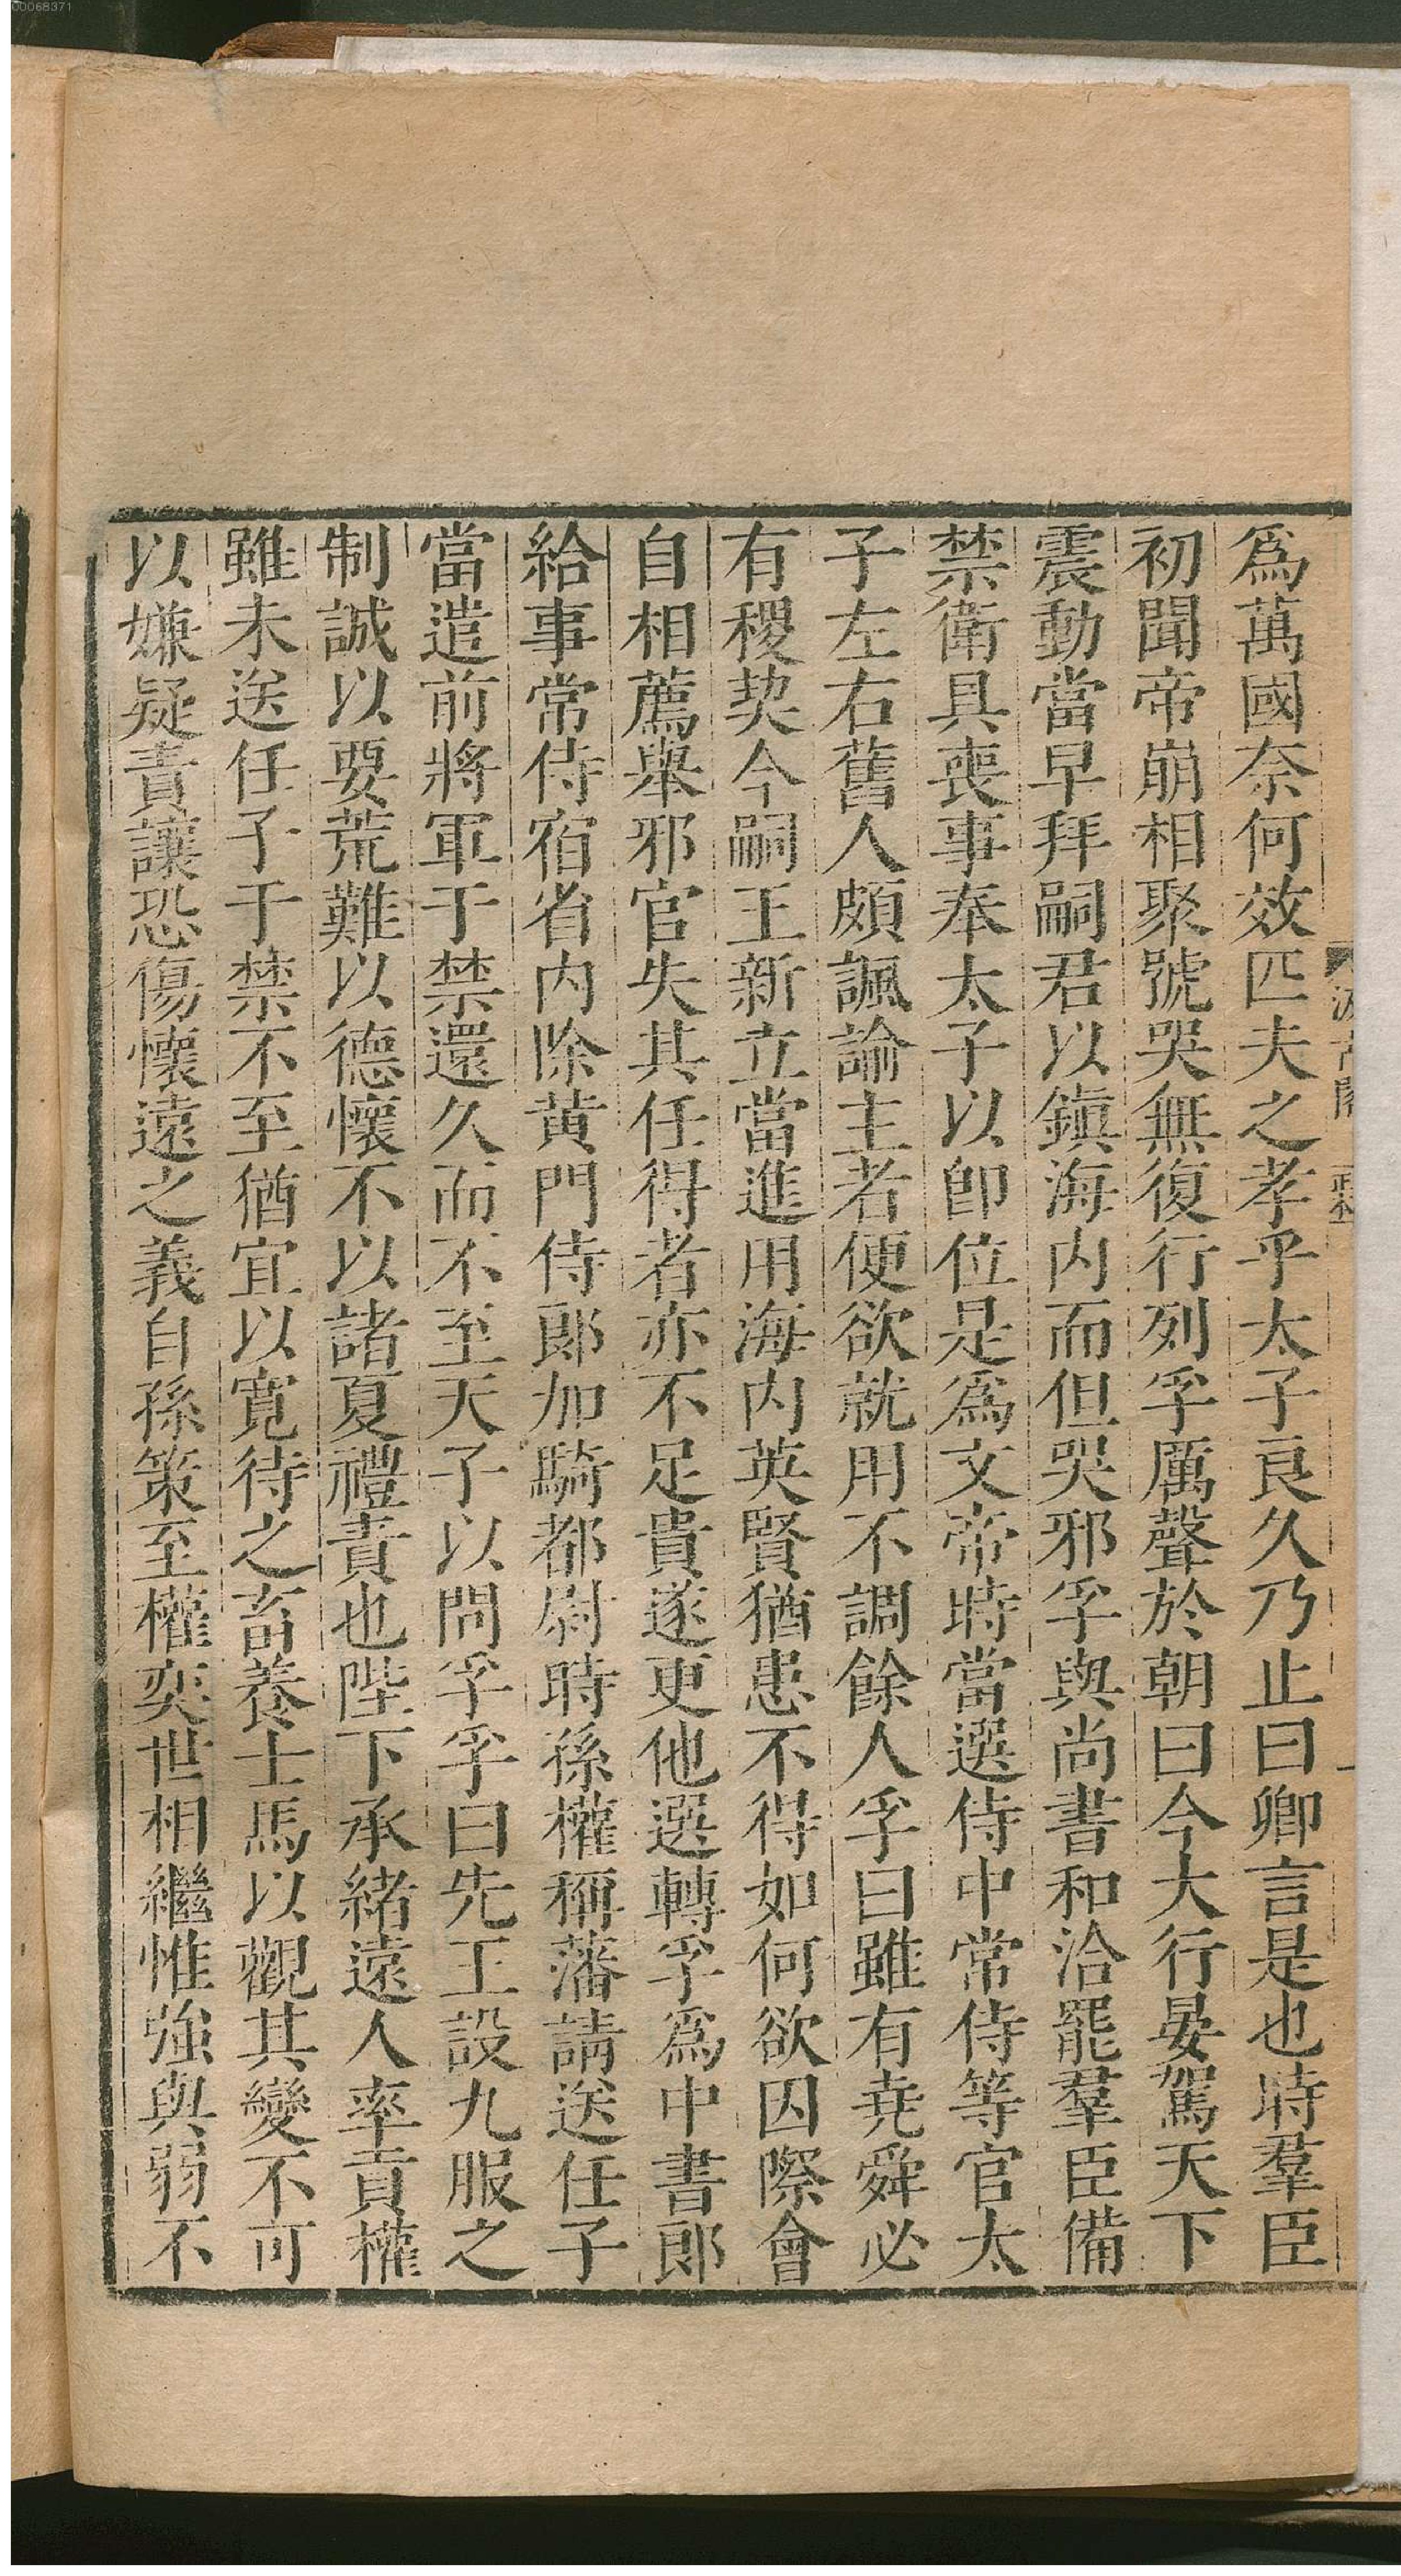 00068371
爲萬國奈何效匹夫之孝乎太子良久乃止曰卿言是也時羣臣
初聞帝崩相聚號哭無復行列孚厲聲於朝曰今大行晏駕天下
震動當早拜嗣君以鎭海内而但哭邪孚與尚書和洽罷羣臣備
禁衛具喪事奉太子以卽位是爲文帝時當選侍中常侍等官太
子左右舊人頗諷諭主者便欲就用不調餘人孚曰雖有堯舜必
有稷契今嗣王新立當進用海内英賢猶患不得如何欲因際會
自相薦舉邪官失其任得者亦不足貴遂更他選轉孚爲中書郎
給事常侍宿省内除黄門侍郎加騎都尉時孫權稱藩請送任子
當遣前將軍于禁還久而不至天子以問孚孚曰先王設九服之
制誠以要荒難以德懷不以諸夏禮責也陛下承緒遠人率貢權
雖未送任子于禁不至猶宜以寛待之畜養士馬以觀其變不可
以嫌疑責讓恐傷懷遠之義自孫策至權奕世相繼惟強與弱不